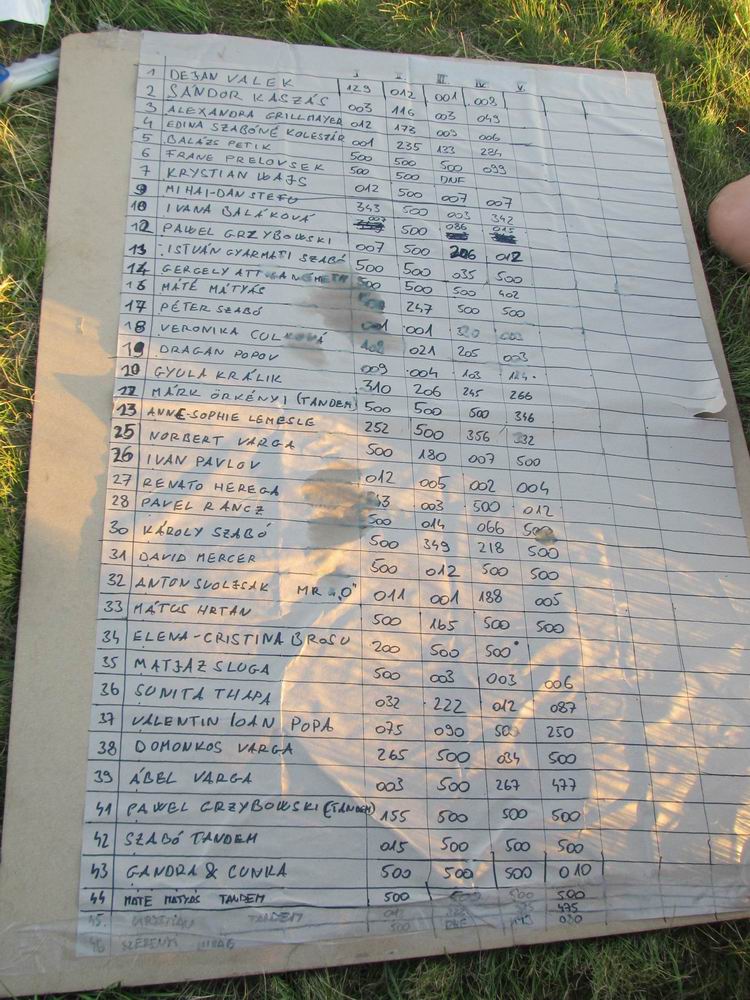 I II III IV V
1 DEJAN VALEK 129 012 001 008
2 SÁNDOR KASZÁS 003 116 003 049
3 ALEXANDRA GRILLMAYER 012 173 009 006
4 EDINA SZABÓNÉ KOLESZÁR 001 235 133 284
5 BALÁZS PETIK 500 500 500 099
6 FRANE PRELOVSEK 500 500 DNF
7 KRYSTIAN WAJS 012 500 007 007
9 MIHAI-DAN STEFU 343 500 003 342
10 IVANA BALÁKOVÁ 007 500 086 015
12 PAWEL GRZYBOWSKI 007 500 206 012
13 ISTVÁN GYARMATI SZABÓ 500 500 035 500
14 GERGELY 500 500 500 402
16 MATÉ MÁTYÁS 500 247 500 500
17 PÉTER SZABÓ 001 001 320 003
18 VERONIKA CULKOVÁ 108 021 205 003
19 DRAGAN POPOV 009 004 103 124
20 GYULA KRÁLIK 310 206 245 266
22 MÁRK ÖRKÉNYI (TANDEM) 500 500 500 346
23 ANNE-SOPHIE LEMESLE 252 500 356 332
25 NORBERT VARGA 500 180 007 500
26 IVAN PAVLOV 012 005 002 004
27 RENATO HEREGA 343 003 500 012
28 PAVEL RANCZ 500 014 066 500
30 KÁROLY SZABÓ 500 349 218 500
31 DAVID MERCER 500 012 500 500
32 ANTON SVOLJSAK MR „O" 011 001 188 005
33 MÁTUS HRTAN 500 165 500 500
34 ELENA-CRISTINA BROSU 200 500 500
35 MATJAZ SLUGA 500 003 003 006
36 SUNITA THAPA 032 222 012 087
37 VALENTIN IOAN POPA 075 090 500 250
38 DOMONKOS VARGA 265 500 034 500
39 ÁBEL VARGA 003 500 267 477
41 PAWEL GRZYBOWSKI (TANDEM) 155 500 500 500
42 SZABÓ TANDEM 015 500 500 500
43 GANDRA & CUNKA 500 500 500 010
44 MATÉ MÁTYÁS TANDEM 500 500 500 500
45. TANDEM 475
46 500 DNF 080